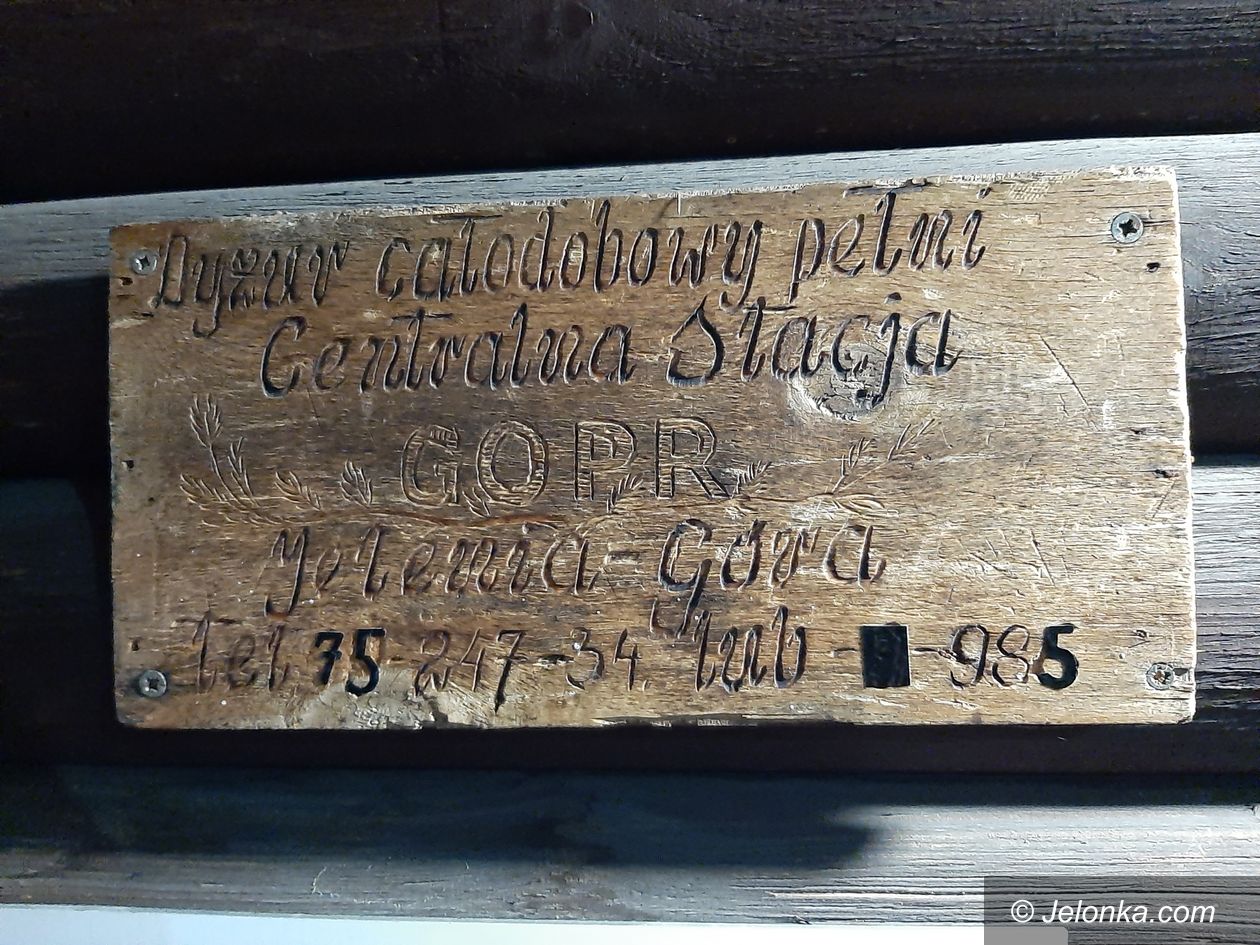 Dyżur całodobowy pełni
Centralna Stacja
GOPR
Jelenia-Góra
tel 75-247-34 lub - -985
© Jelonka.com